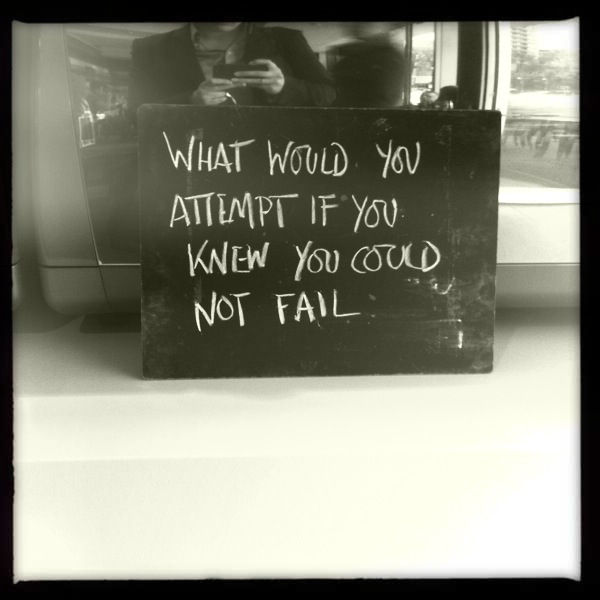 WHAT WOULD YOU
ATTEMPT IF YOU
KNEW YOU COULD
NOT FAIL